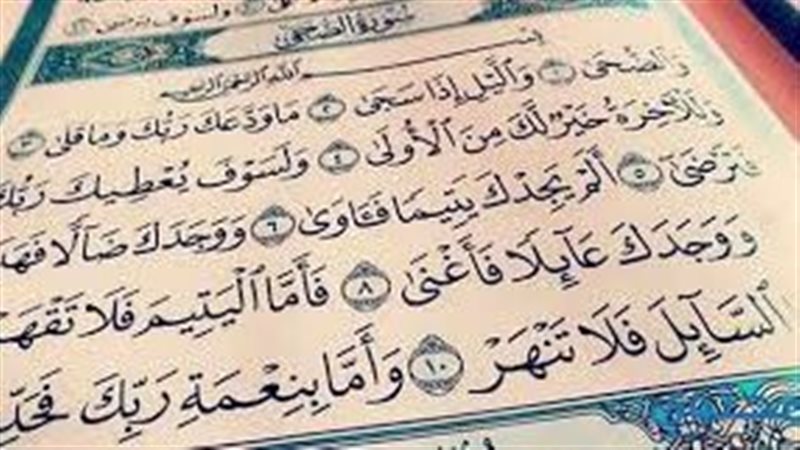 ولسوف
سورة الضحى
بسم الله الرحمن الرحيم
وَالضُّحَىٰ ١ وَاللَّيْلِ إِذَا سَجَىٰ ٢ مَا وَدَّعَكَ رَبُّكَ وَمَا قَلَىٰ ٣
وَلَلْآخِرَةُ خَيْرٌ لَّكَ مِنَ الْأُولَىٰ ٤ وَلَسَوْفَ يُعْطِيكَ رَبُّكَ
فَتَرْضَىٰ ٥ أَلَمْ يَجِدْكَ يَتِيمًا فَـَٔاوَىٰ ٦ وَوَجَدَكَ ضَآلًّا فَهَ
وَوَجَدَكَ عَآئِلًا فَأَغْنَىٰ ٨ فَأَمَّا الْيَتِيمَ فَلَا تَقْهَ
السَّآئِلَ فَلَا تَنْهَرْ ١٠ وَأَمَّا بِنِعْمَةِ رَبِّكَ فَحَدِّ